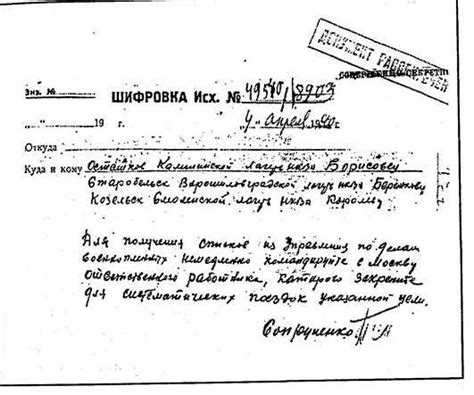 ДОКУМЕНТ РАССЕКРЕЧЕН
СОВЕРШЕННО СЕКРЕТНО
Экз. №
ШИФРОВКА Исх. № 49580/8903
„ “ 19 г. 4 апреля 1940 г.
Откуда
Куда и кому Осташков Калининской лагерь НКВД Борисовцу
Старобельск Ворошиловградской лагерь НКВД Бережкову
Козельск Смоленской лагерь НКВД Королеву
Для получения списков из Управления по делам
военнопленных немедленно командируйте в Москву
ответственного работника, которого закрепите
для систематических поездок указанной цели.
Сопруненко